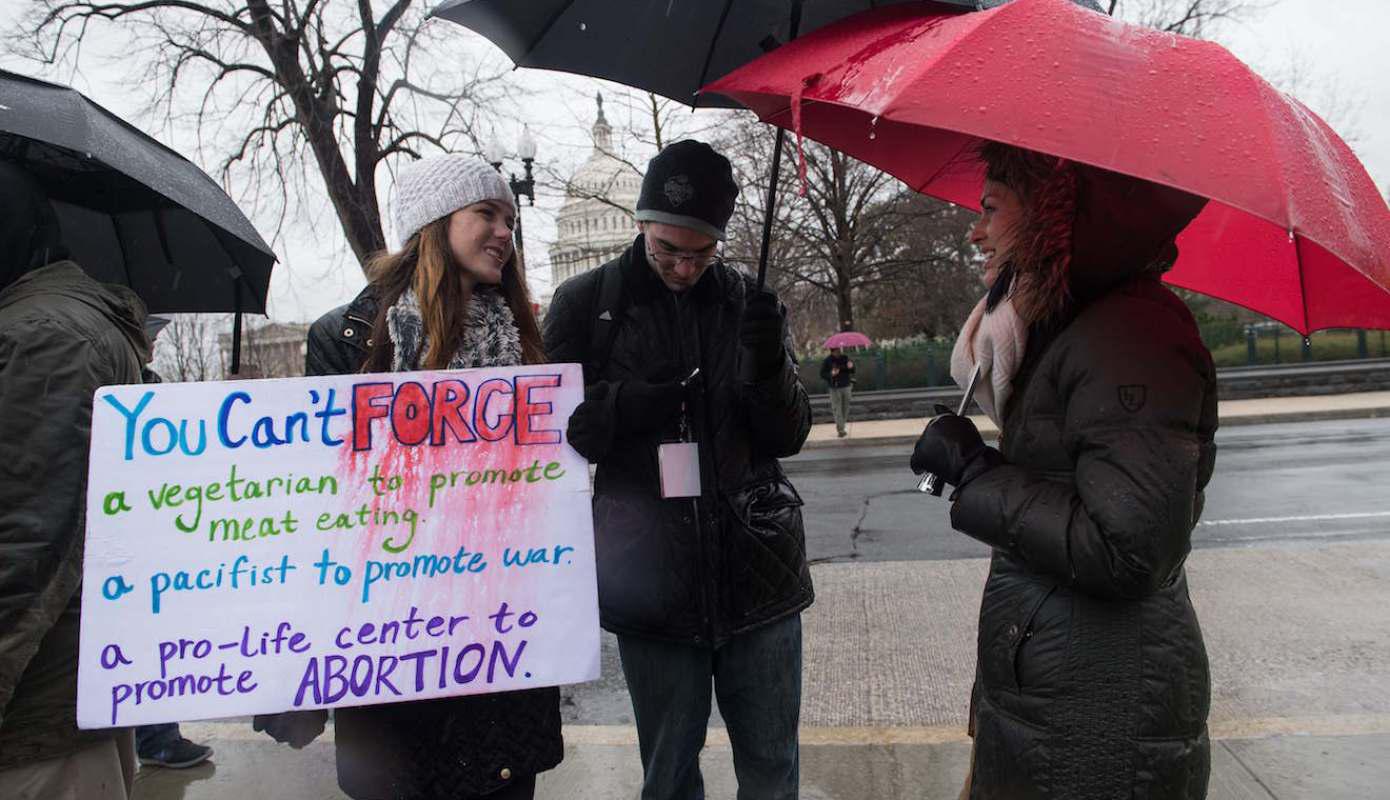 You Can't FORCE
a vegetarian to promote
meat eating.
a pacifist to promote war.
a pro-life center to
promote ABORTION.